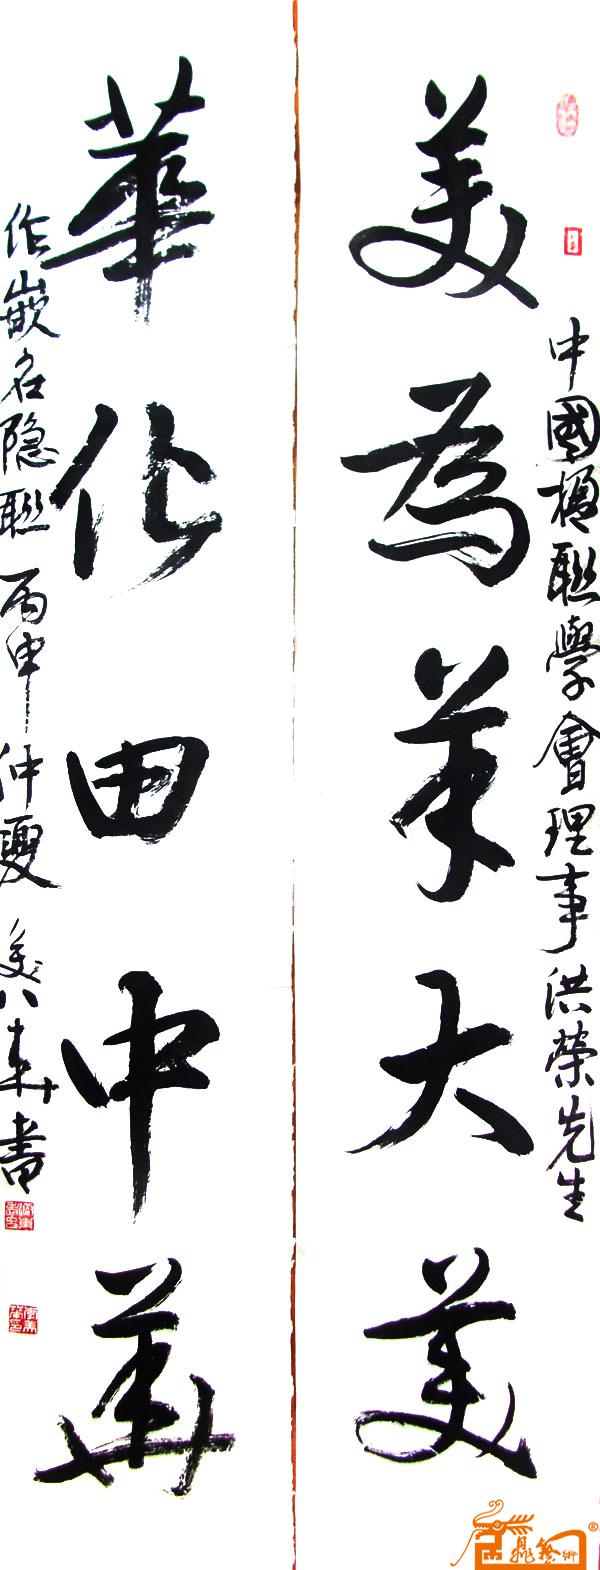 中國楹聯學會理事洪榮先生
美為羊大美
華化由中華
作嵌名隐聯 丙申仲夏 書